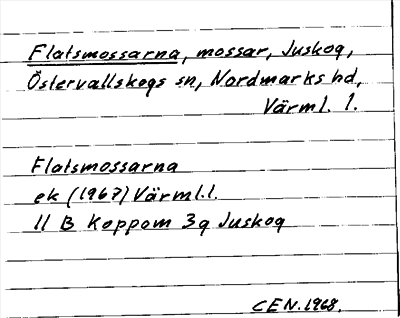 Flatsmossarna, mossar, Juskog,
Östervallskogs sn, Nordmarks hd,
Värml. l.
Flatsmossarna
ek (1967) Värml.l.
11 B Koppom 3g Juskog
CEN.1968.